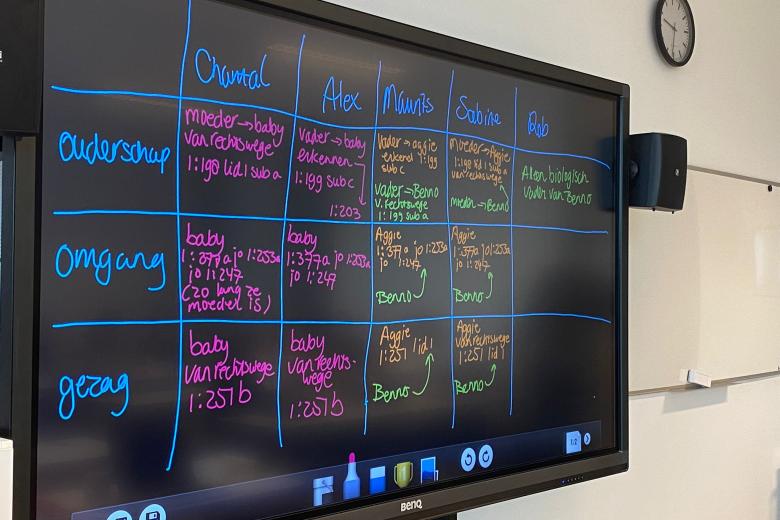 Chantal
Alex
Maurits
Sabine
Rob
Ouderschap
moeder→baby
van rechtswege
1:198 lid 1 sub a
vader→baby
erkennen
1:199
sub c
1:203
Vader→aggie
erkend 1:199
sub c
vader→Benno
v. rechtswege
1:199 sub a
moeder→Aggie
1:198 lid 1 sub a
van rechtswege
moeder→Benno
Alleen biologisch
vader van Benno
Omgang
baby
1:377a jo 1:253a
jo 1:247
(zo lang ze
moeder is)
baby
1:377a jo 1:253a
jo 1:247
Aggie
1:377a jo 1:253a
jo 1:247
Benno
Aggie
1:377a jo 1:253a
jo 1:247
Benno
gezag
baby
van rechtswege
1:251b
baby
van rechts-
wege
1:251b
Aggie
1:251 lid 1
Benno
Aggie
van rechtswege
1:251 lid 1
Benno
1/2
BenQ